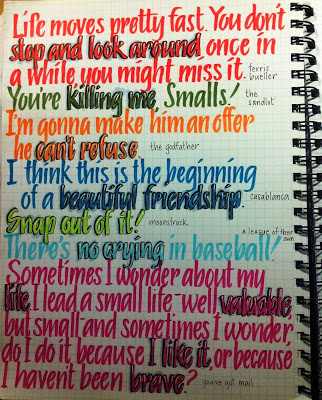 Life moves pretty fast. You don't
stop and look around once in
a while you might miss it. ferris
bueller
You're killing me, Smalls! the
sandlot
I'm gonna make him an offer
he can't refuse. the godfather
I think this is the beginning
of a beautiful friendship. casablanca
Snap out of it! moonstruck
a league of their
own
There's no crying in baseball!
Sometimes I wonder about my
life. I lead a small life-well valuable,
but small and sometimes I wonder,
do I do it, because I like it, or because
I haven't been brave? you've got mail